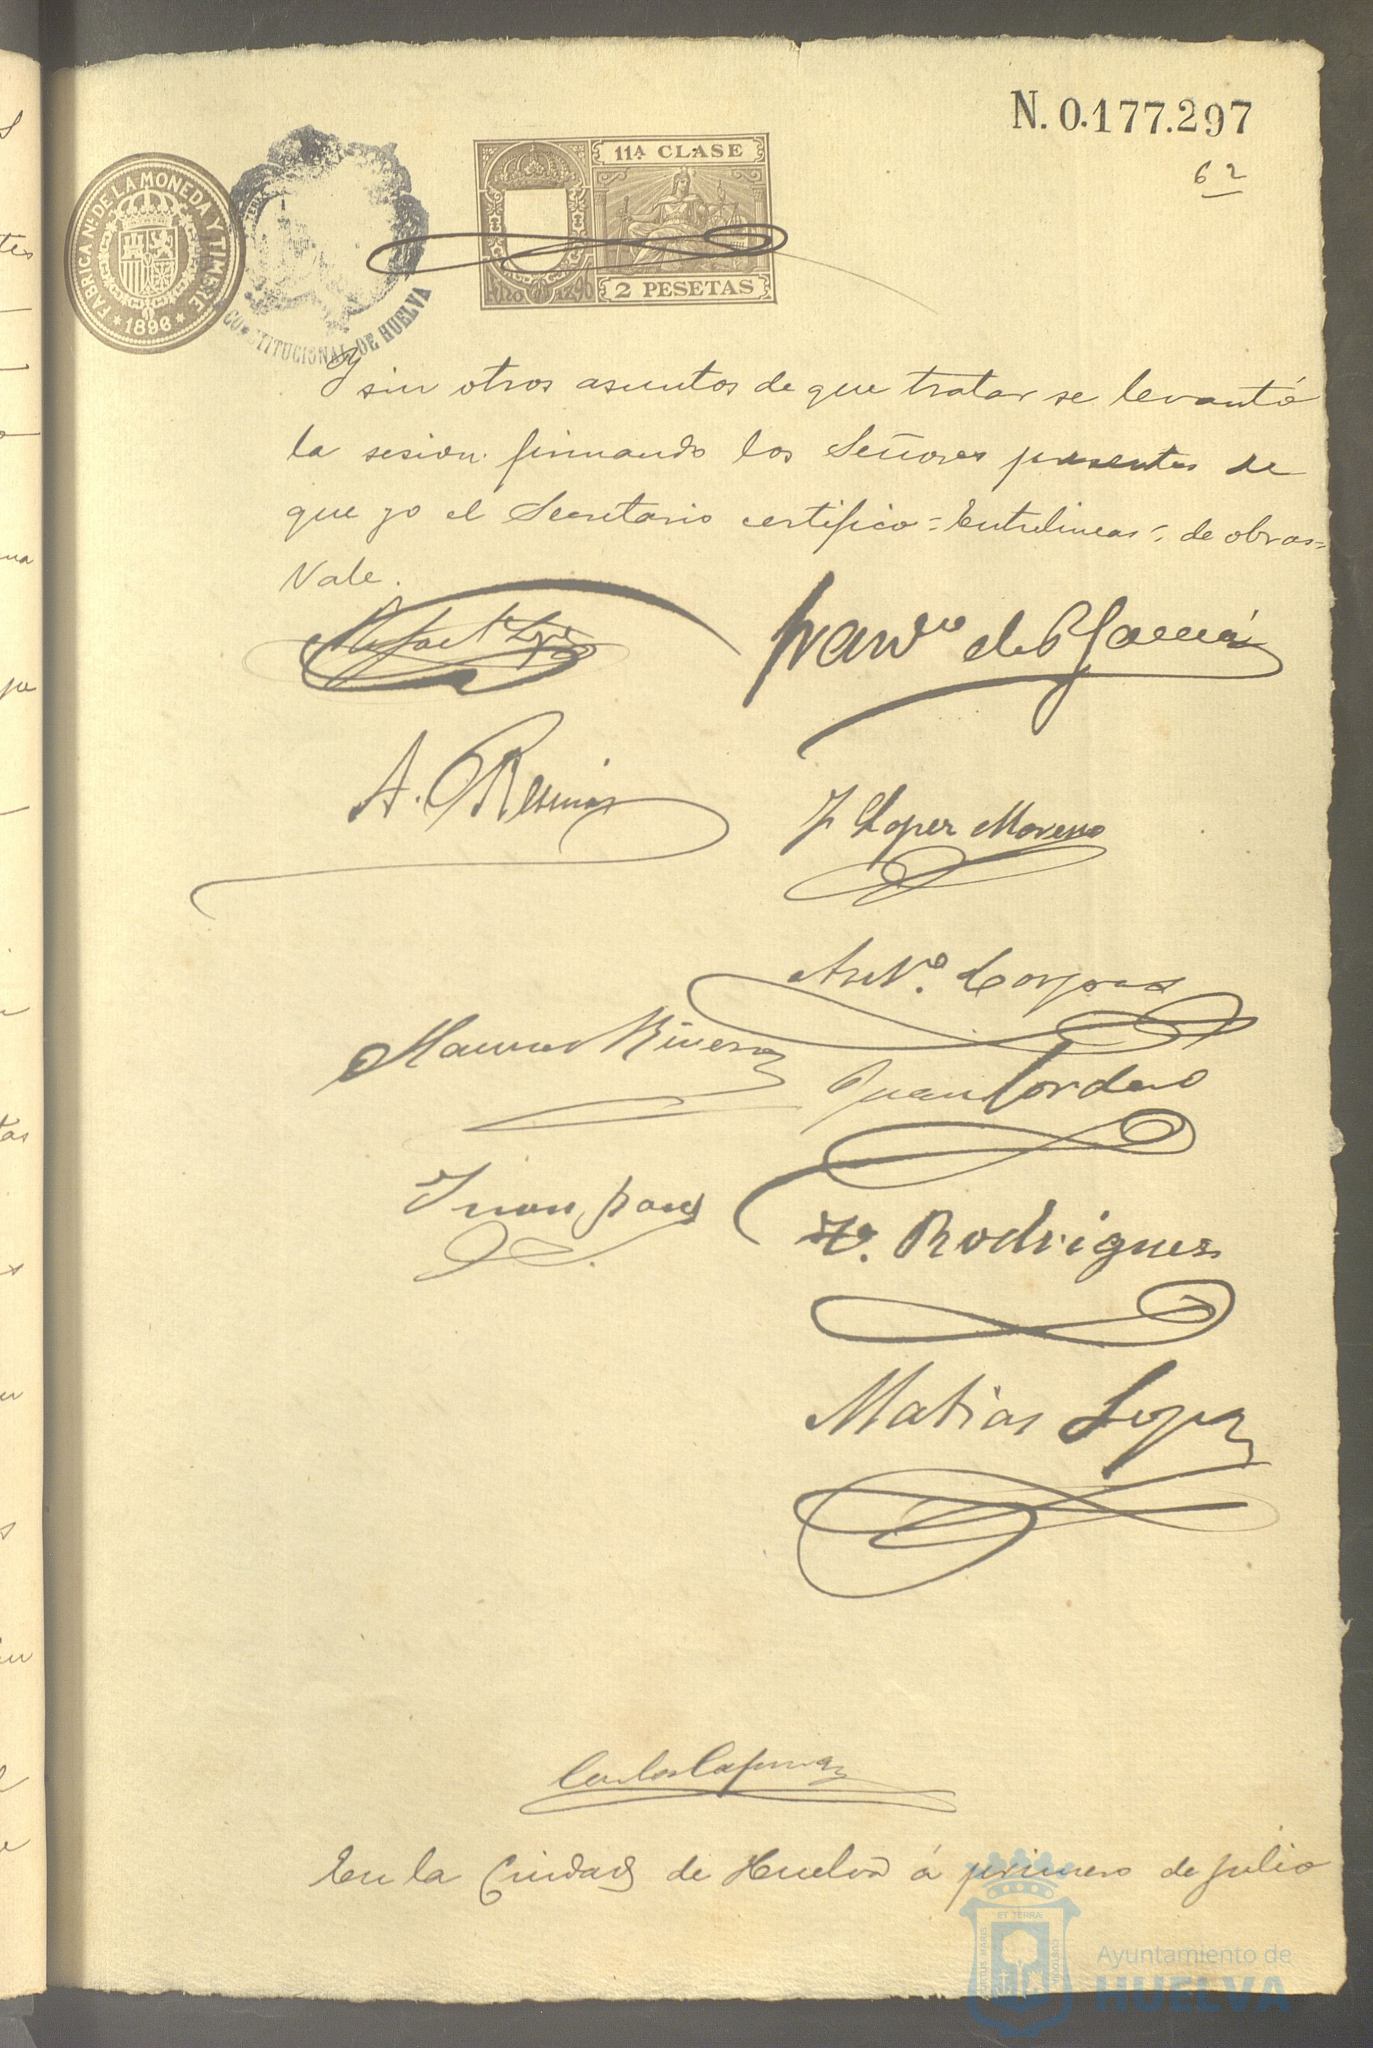 N. 0.177.297
62
FABRICA NL. DE LA MONEDA Y TIMBRE
* 1896 *
CONSTITUCIONAL DE HUELVA
11ª CLASE
2 PESETAS
Y sin otros asuntos de que tratar se levantó
la sesion firmando los Señores presentes de
que yo el Secretario certifico = Entrelineas =, de obras =
Vale.
Rafael Lopez
A. Resinas
J Lopez Moreno
Antº. Corpas
Manuel Rivera
Juan Cordero
Juan
Fº. Rodriguez
Matias Lopez
Carlos
En la Ciudad de Huelva á primero de Julio
Ayuntamiento de
HUELVA